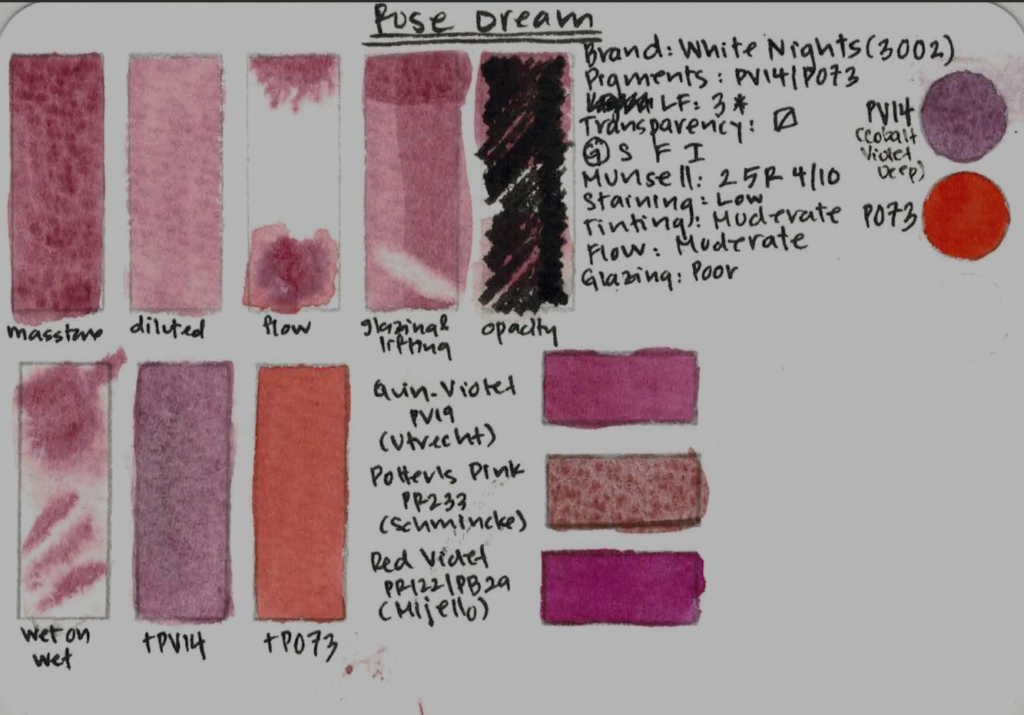 Rose Dream
Brand: White Nights (3002)
Pigments: PV14/PO73
LF: 3*
Transparency:
G S F I
Munsell: 2 5R 4/10
Staining: Low
Tinting: Moderate
Flow: Moderate
Glazing: Poor
PV14
(Cobalt
Violet
Deep)
PO73
masstone
diluted
flow
glazing &
lifting
opacity
wet on
wet
+PV14
+PO73
Quin. Violet
PV19
(Utrecht)
Potter's Pink
PR233
(Schmincke)
Red Violet
PR122/PB29
(Mijello)